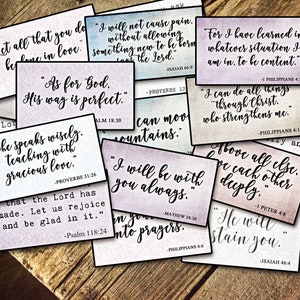 let all that you do
be done in love.
"I will not cause pain
without allowing
something new to be born,"
says the Lord.
-ISAIAH 66:9
"For I have learned in
whatever situation I
am in, to be content."
-1 PHILIPPIANS 4:
"As for God,
His way is perfect."
-PSALM 18:30
-PROVERBS
"I can do all things
through Christ,
who strengthens me."
-PHILIPPIANS 4:
can move
mountains."
She speaks wisely,
teaching with
gracious love.
-PROVERBS 31:26
"I will be with
you always."
-MATTHEW 28:20
Above all else,
love each other
deeply.
-1 PETER 4:8
that the Lord has
made. Let us rejoice
and be glad in it."
-Psalm 118:24
into prayers.
-PHILIPPIANS 4:6
"He will
sustain you."
-ISAIAH 46:4